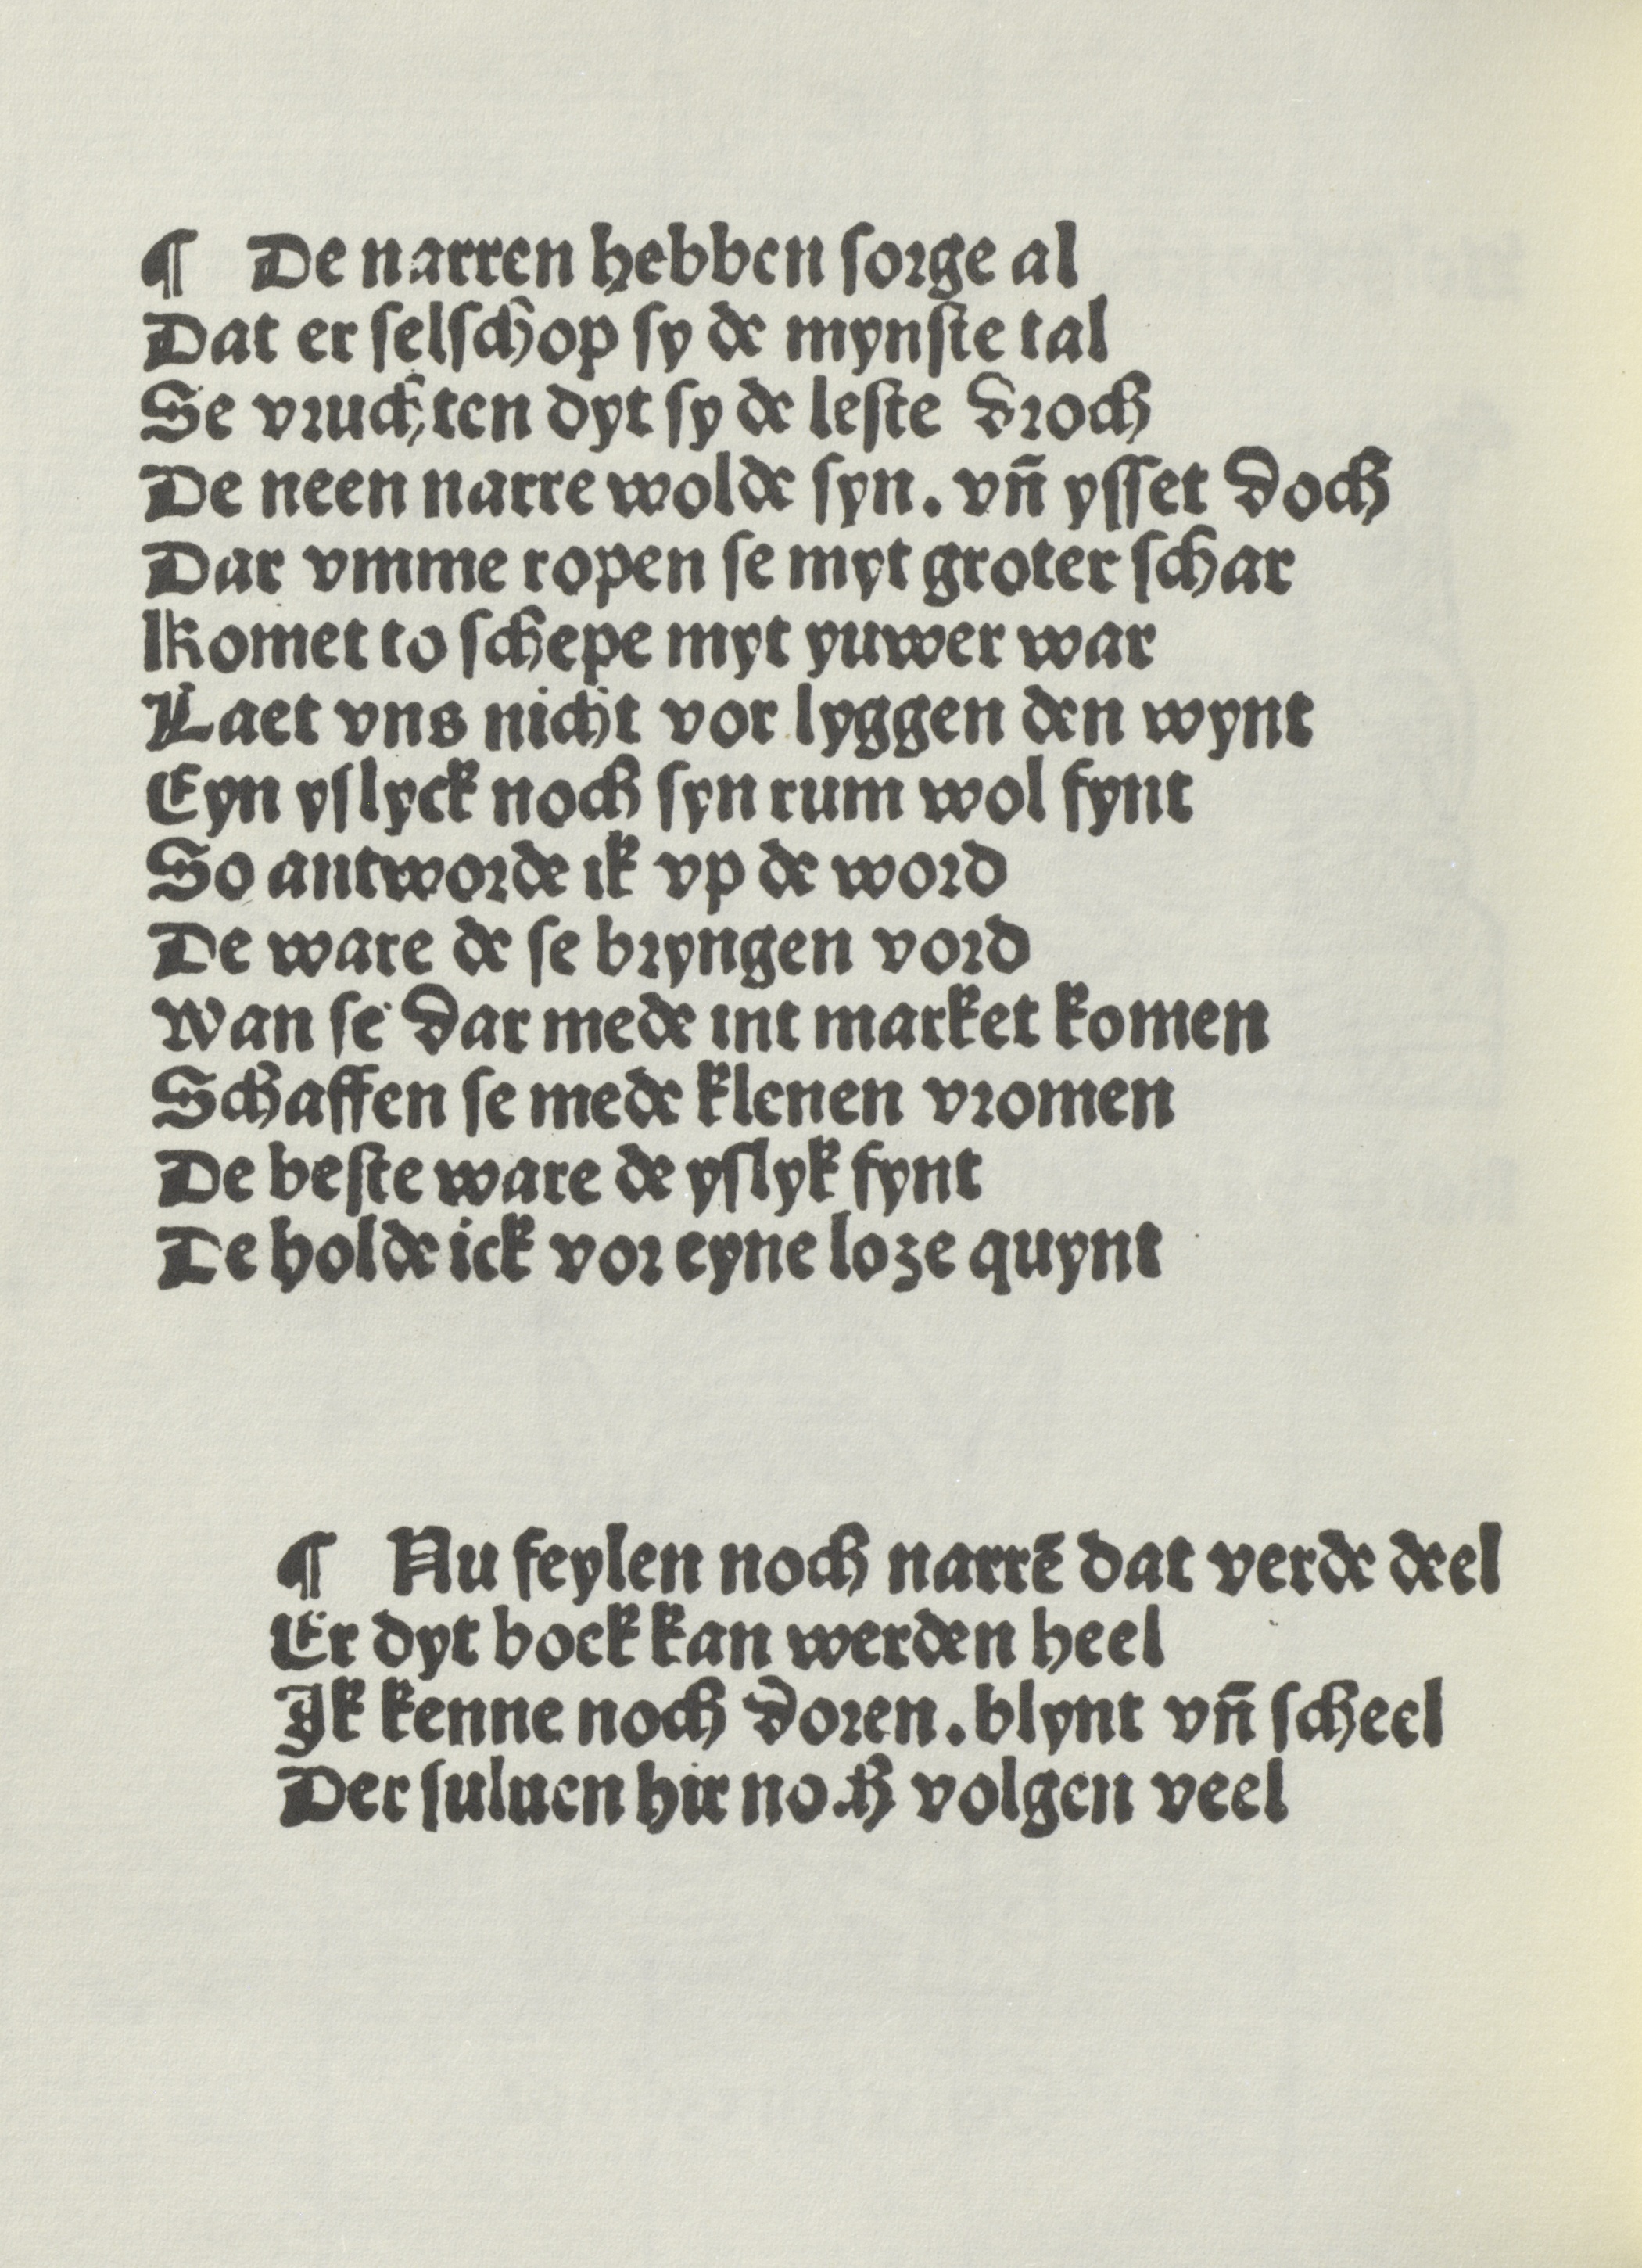 ¶ De narren hebben ſorge al
Dat er ſelſchop ſy de mynſte tal
Se vruchten dyt ſy de leſte droch
De neen narre wolde ſyn. vn̄ yſſet doch
Dar vmme ropen ſe myt groter ſchar
Komet to ſchepe myt yuwer war
Laet vns nicht vor lyggen den wynt
Eyn yſlyck noch ſyn rum wol fynt
So antworde ik vp de word
De ware de ſe bryngen vord
Wan ſe dar mede int market komen
Schaffen ſe mede klenen vromen
De beſte ware de yſlyk fynt
De holde ick vor eyne loze quynt
¶ Nu feylen noch narrē dat verde deel
Er dyt bock kan werden heel
Ik kenne noch doren. blynt vn̄ ſcheel
Der ſuluen hir noch volgen veel